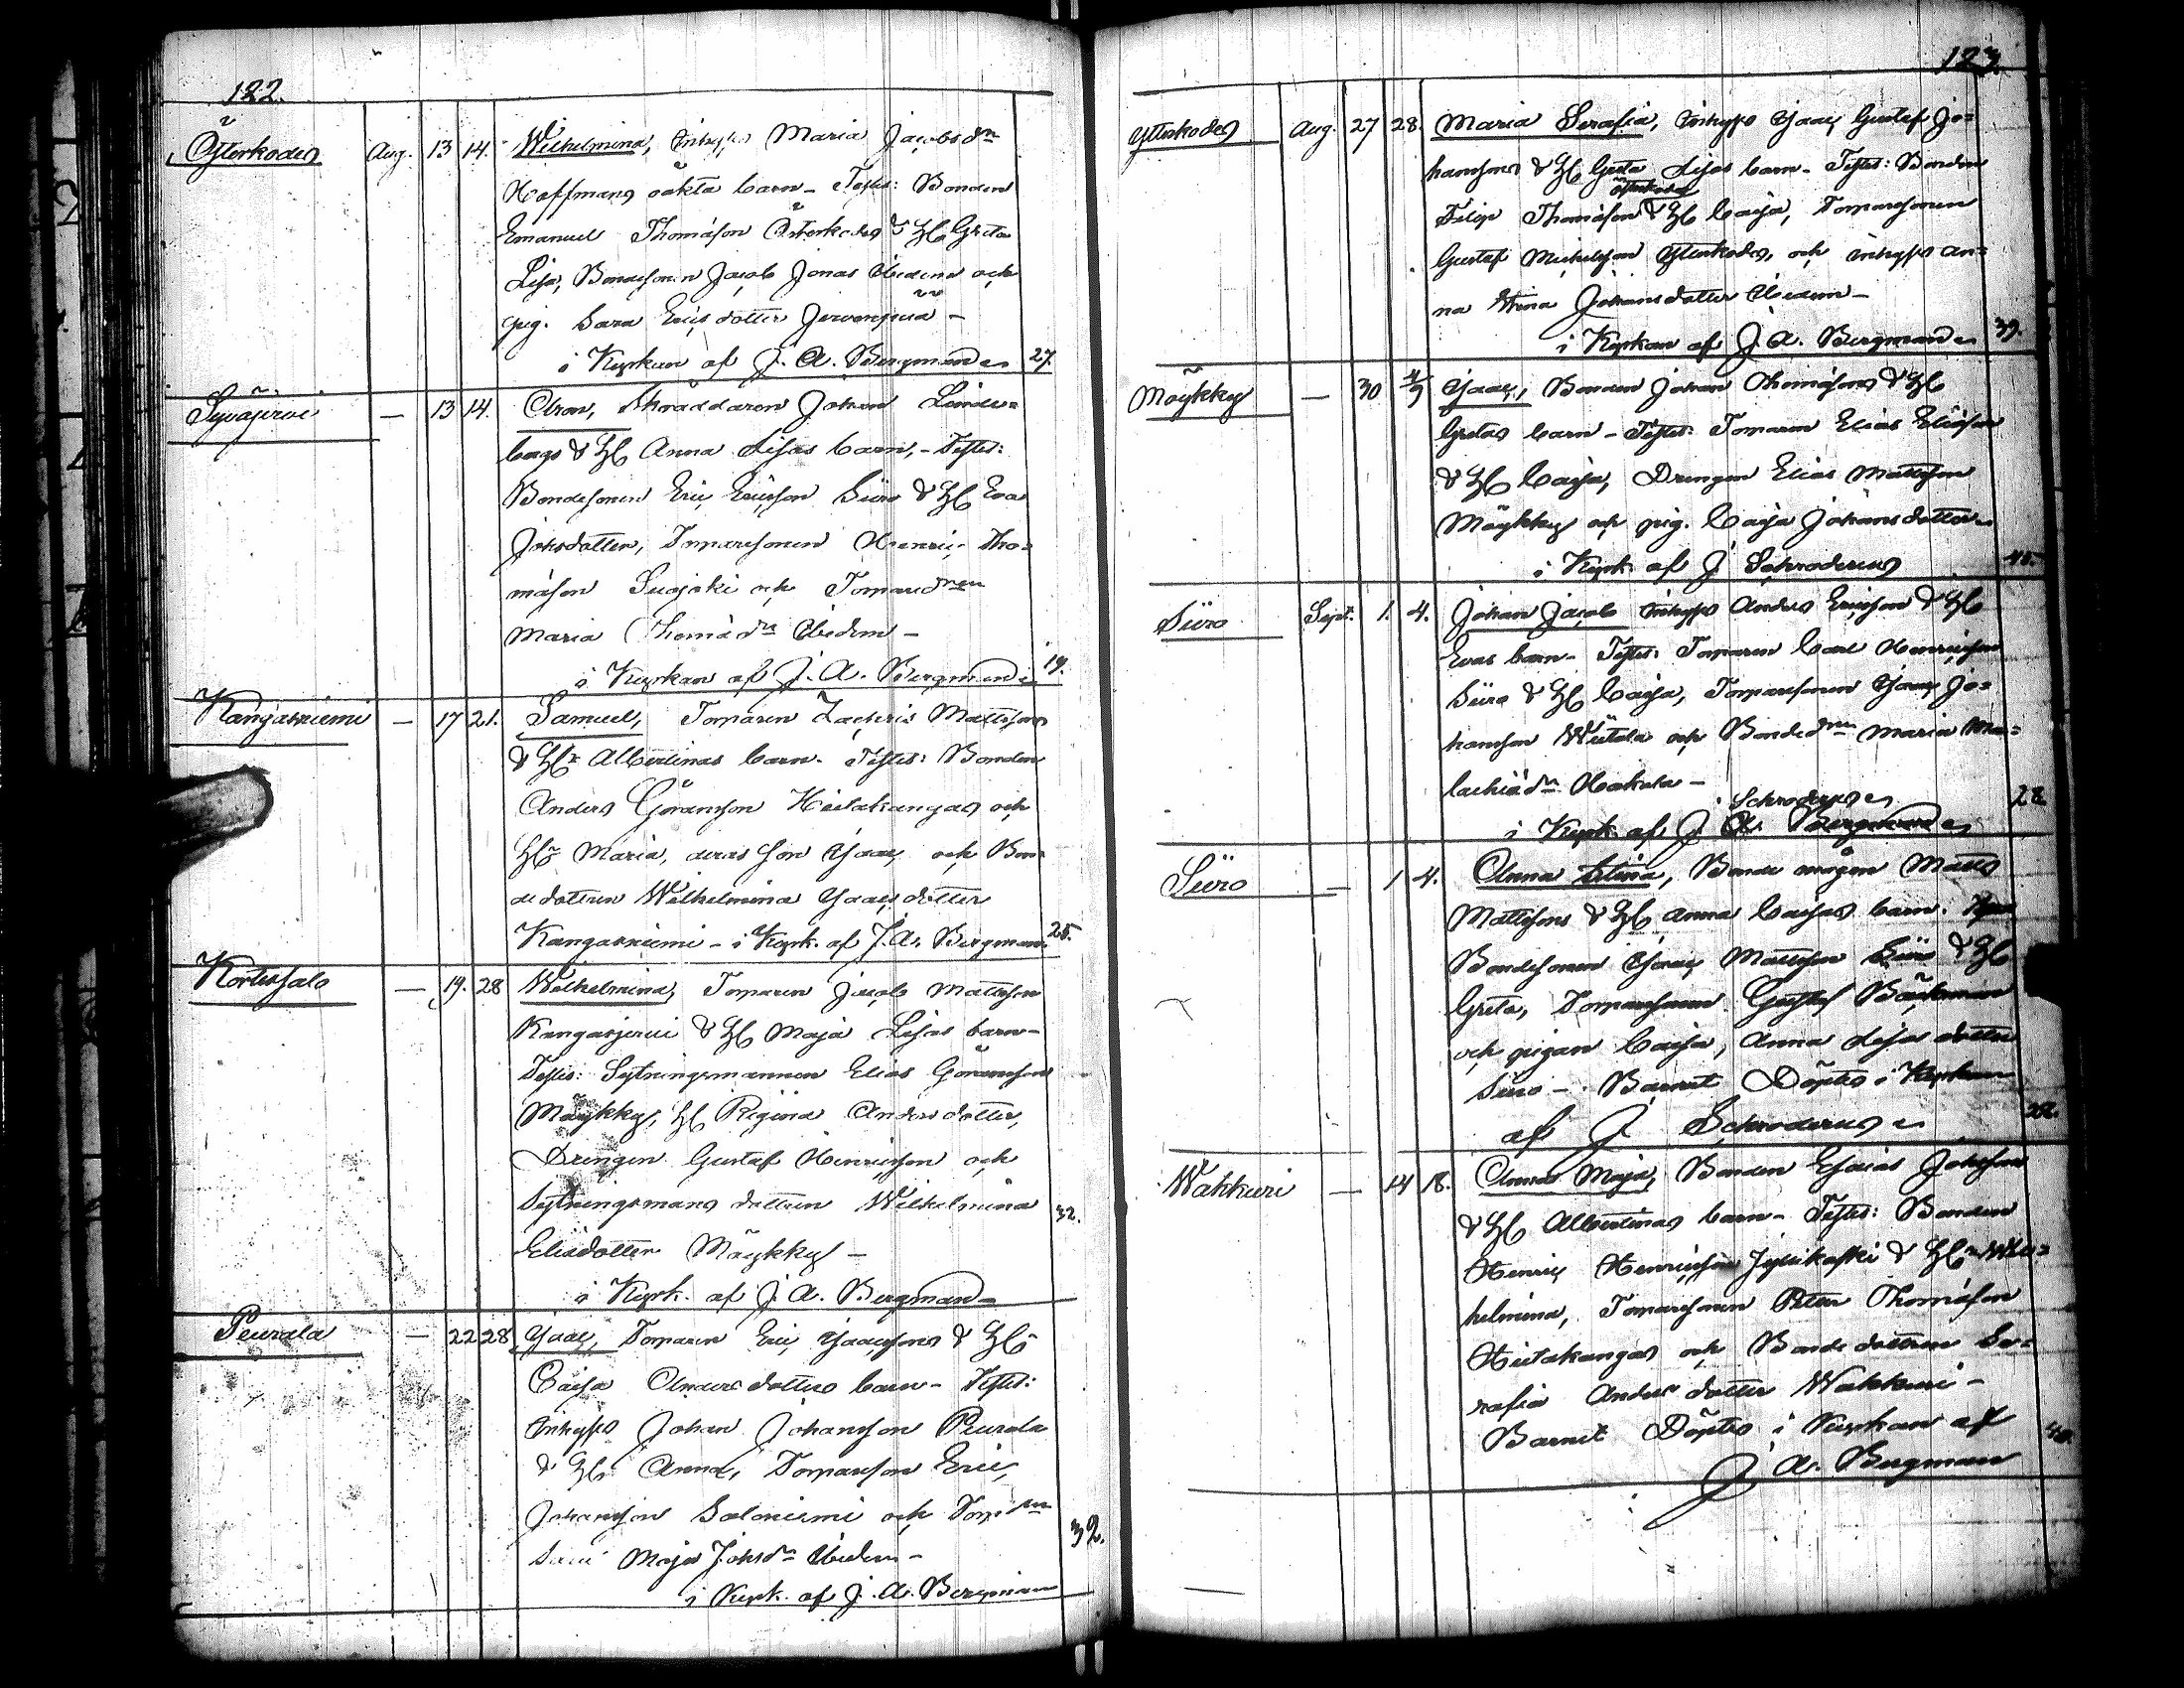 122.
Österkodes Aug. 13 14. Wilhelmina, Inhyses Maria Jacobsdr
Hoffmans oäkta barn – Testes: Bonden
Emanuel Thomasson Österkodes & H. Greta
Lisa, Bondsonen Jacob Jonas Ibidem och
pig. Sara Ericsdotter Jervenpää –
i Kyrkan af J. A. Bergman 27.
Syväjervi — 13 14. Aron, Skräddaren Johan Lind-
bergs & H. Anna Lisas barn, – Testes:
Bondesonen Eric Ericsson Siiro & H. Eva
Johsdotter, Torparesonen Henric Tho-
masson Suojoki och Torparedren
Maria Thomadr Ibidem –
i Kyrkan af J. A. Bergman 19.
Kangasniemi — 17 21. Samuel, Torparen Zacheris Mattssons
& H. Albertinas barn. Testes: Bonden
Anders Göransson Hietakangas och
H. Maria, deras son Isaac och Bon-
dedottren Wilhelmina Isaacsdotter
Kangasniemi – i Kyrk. af J. A. Bergman 25.
Kortessalo — 19. 28 Wilhelmina, Torparen Jacob Mattsson
Kangasjervi & H. Maja Lisas barn –
Testes: Sytningsmannen Elias Göransson
Mäykky, H. Regina Andersdotter,
Drengen Gustaf Henricsson och
Sytningsmans dottren Wilhelmina
Eliedotter Mäykky – 32.
i Kyrk. af J. A. Bergman –
Peurala — 22 28 Isaac, Torparen Eric Isaacssons & H.
Caisa Andersdotters barn – Testes:
Inhyses Johan Johansson Peurala
& H. Anna, Torpareson Eric
Johansson Saloniemi och Torpdrn
Maja Johsdr Ibidem – 32.
i Kyrk. af J. A. Bergman
123
Ytterkodes Aug. 27 28. Maria Serafia, Inhyses Isaac Gustaf Jo-
hanssons & H. Greta Lisas barn – Testes: Bonden
Österkodes
Filip Thomasson & H. Caisa, Torparesonen
Gustaf Michelsson Ytterkodes, och inhyses An-
na Stina Johansdotter Ibidem –
i Kyrkan af J. A. Bergman 39.
Mäykky — 30 4/9 Isaac, Bonden Johan Thomassons & H.
Gretas barn – Testes: Torparen Elias Eliasson
& H. Caisa, Drengen Elias Mattsson
Mäykky och pig. Caisa Johansdotter
i Kyrk. af J Schroderus 40.
Siiro Sept. 1. 4. Johan Jacob Inhyses Anders Ericsson & H.
Evas barn – Testes: Torparen Carl Henricsson
Siiro & H. Caisa, Torparesonen Isaac Jo-
hansson Wiitala och Bondedrn Maria Ma-
lachiadr Hookola –
Schroderus
i Kyrk. af J. A. Bergman 28
Siiro — 1 4. Anna Stina, Bonde mågen Matts
Mattssons & H. Anna Caisas barn.
Bondesonen Isaac Mattsson Siiro & H.
Greta, Torparesonen Gustaf Bäckman
och pigan Caisa, Anna Lisa dotter
Siiro – Barnet Döptes i Kyrkan
af J Schroderus 22.
Wahkuri — 14 18. Anna Maja, Bonden Esaias Johsson
& H. Albertinas barn – Testes: Bonden
Henric Henricsson Jylhikoski & H. Wil-
helmina, Torparesonen Petter Thomasson
Hietakangas och Bonde dottren Se-
rafia Andersdotter Wahkuri –
Barnet Döptes i Kyrkan af
J A. Bergman